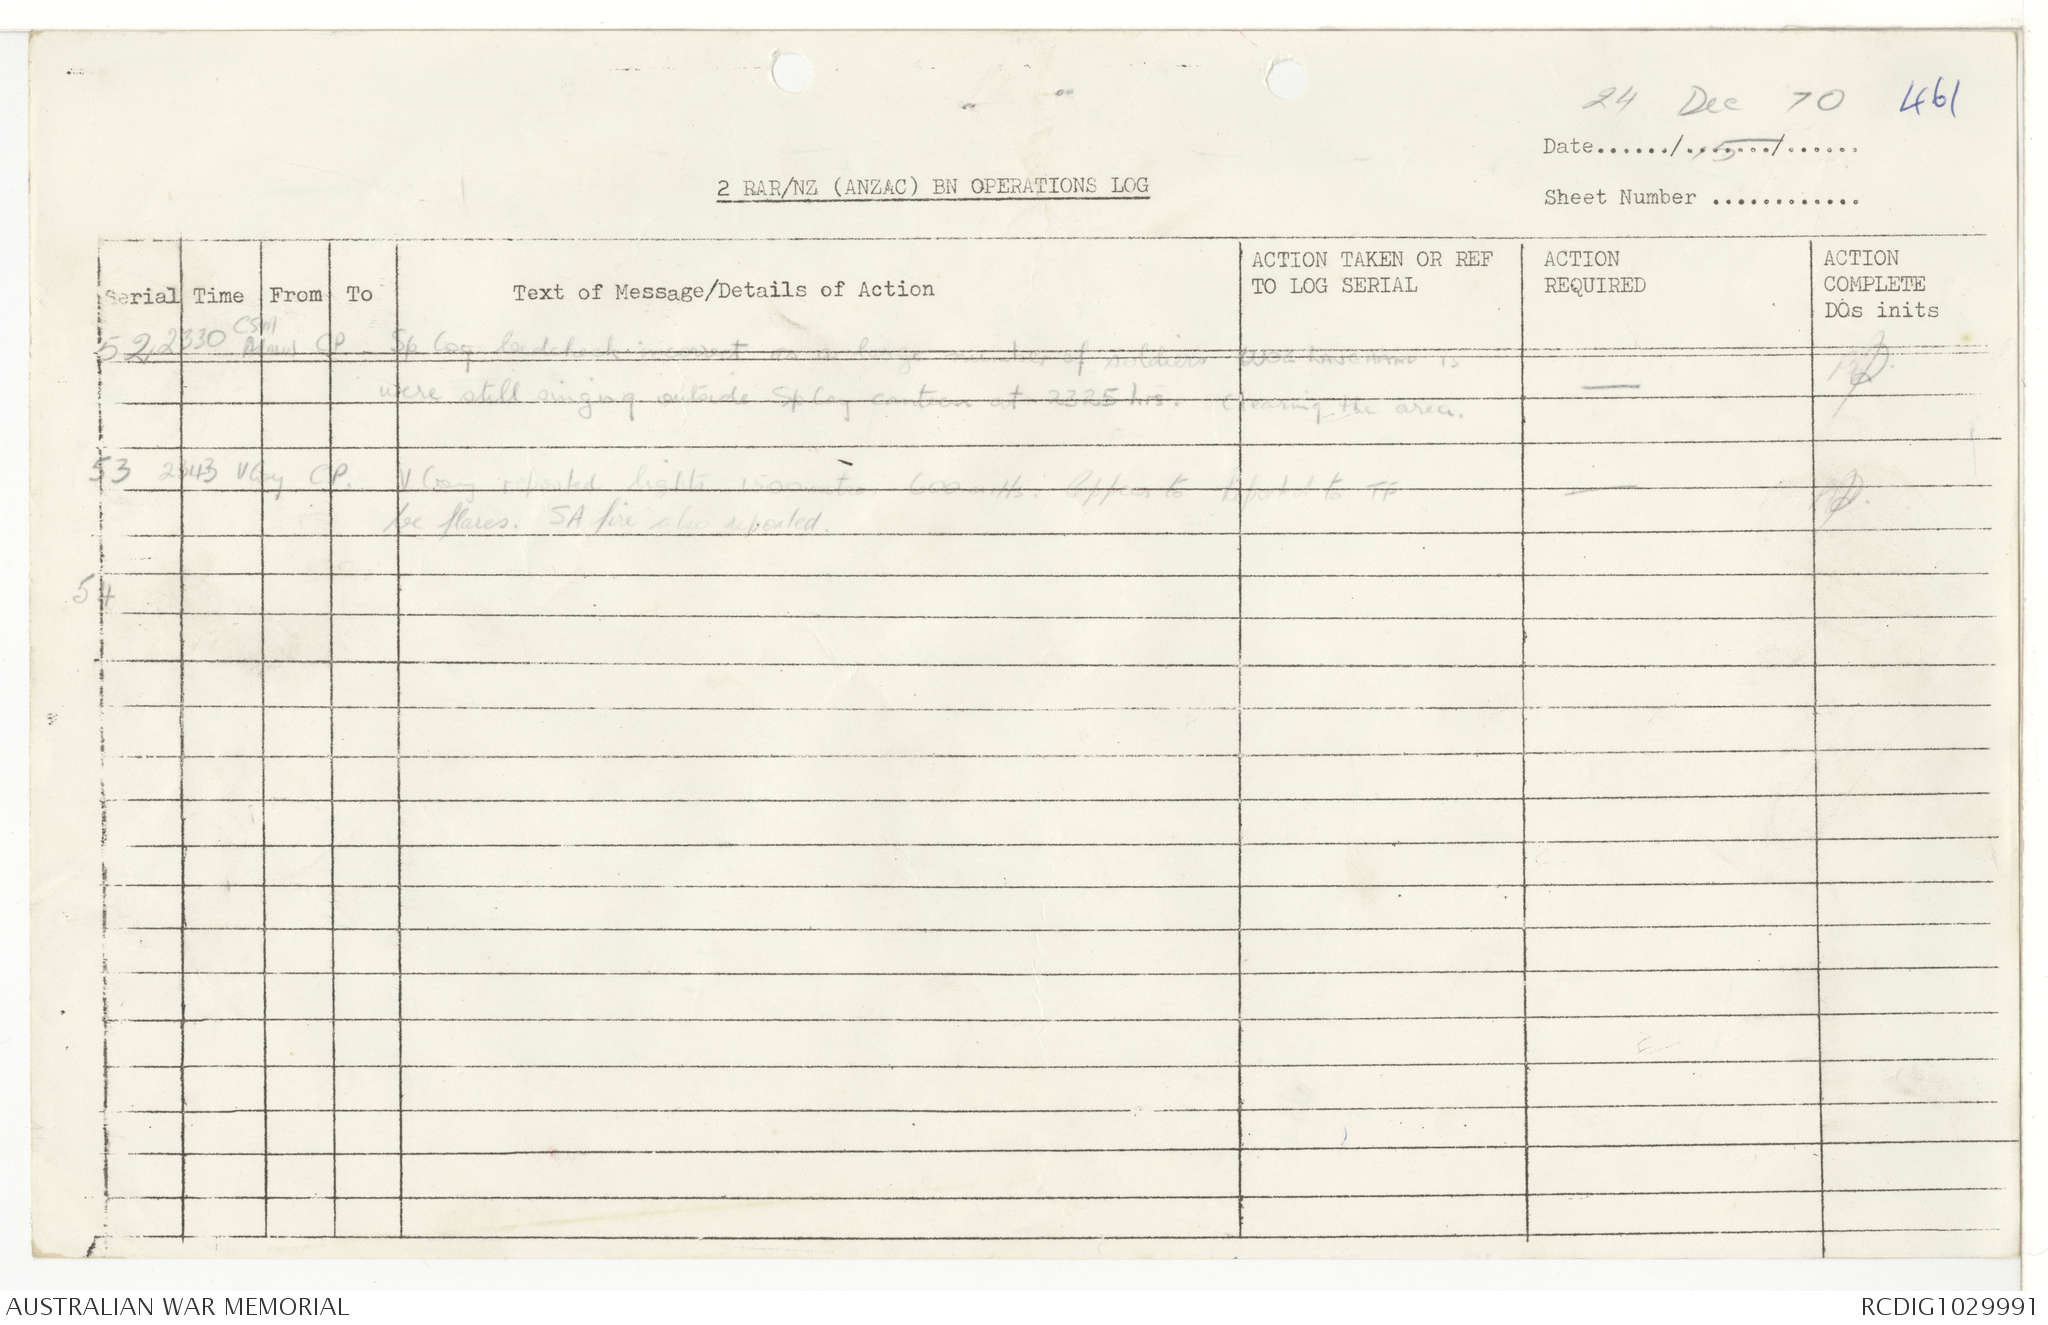 24 Dec 70 461
Date....../......../......
15
2 RAR/NZ (ANZAC) BN OPERATIONS LOG
Sheet Number ............
Serial Time From To Text of Message/Details of Action ACTION TAKEN OR REF TO LOG SERIAL ACTION REQUIRED ACTION COMPLETE DOs inits
52 2330 CSM CP Sp Coy incorrect as a large number of soldiers is
were still singing outside Sp Coy canteen at 2325 hrs. Clearing the area. —
53 2343 V Coy CP. V Coy reported lights 1500 metres 600 mils. Appears to Reported to TF —
be flares. SA fire also reported.
54
AUSTRALIAN WAR MEMORIAL RCDIG1029991